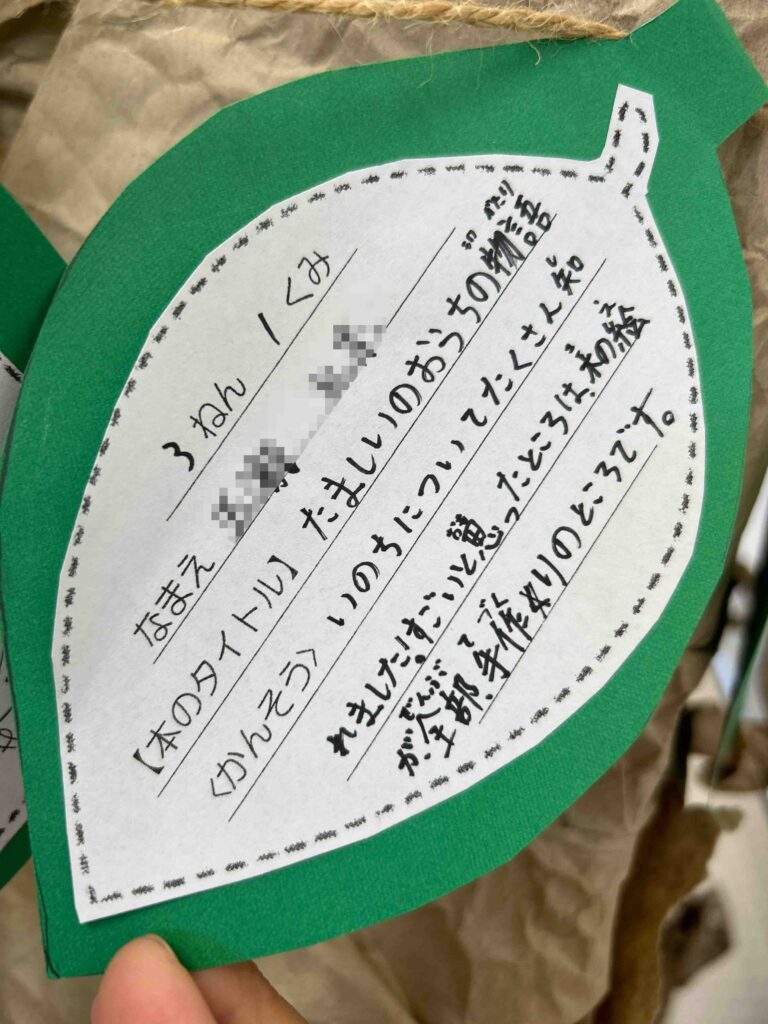 3 ねん 1 くみ
なまえ
【本のタイトル】たましいのおうちの物語
〈かんそう〉いのちについてたくさん知
れました!すごいと思ったところは、本の絵
が、全部、手作りのところです。